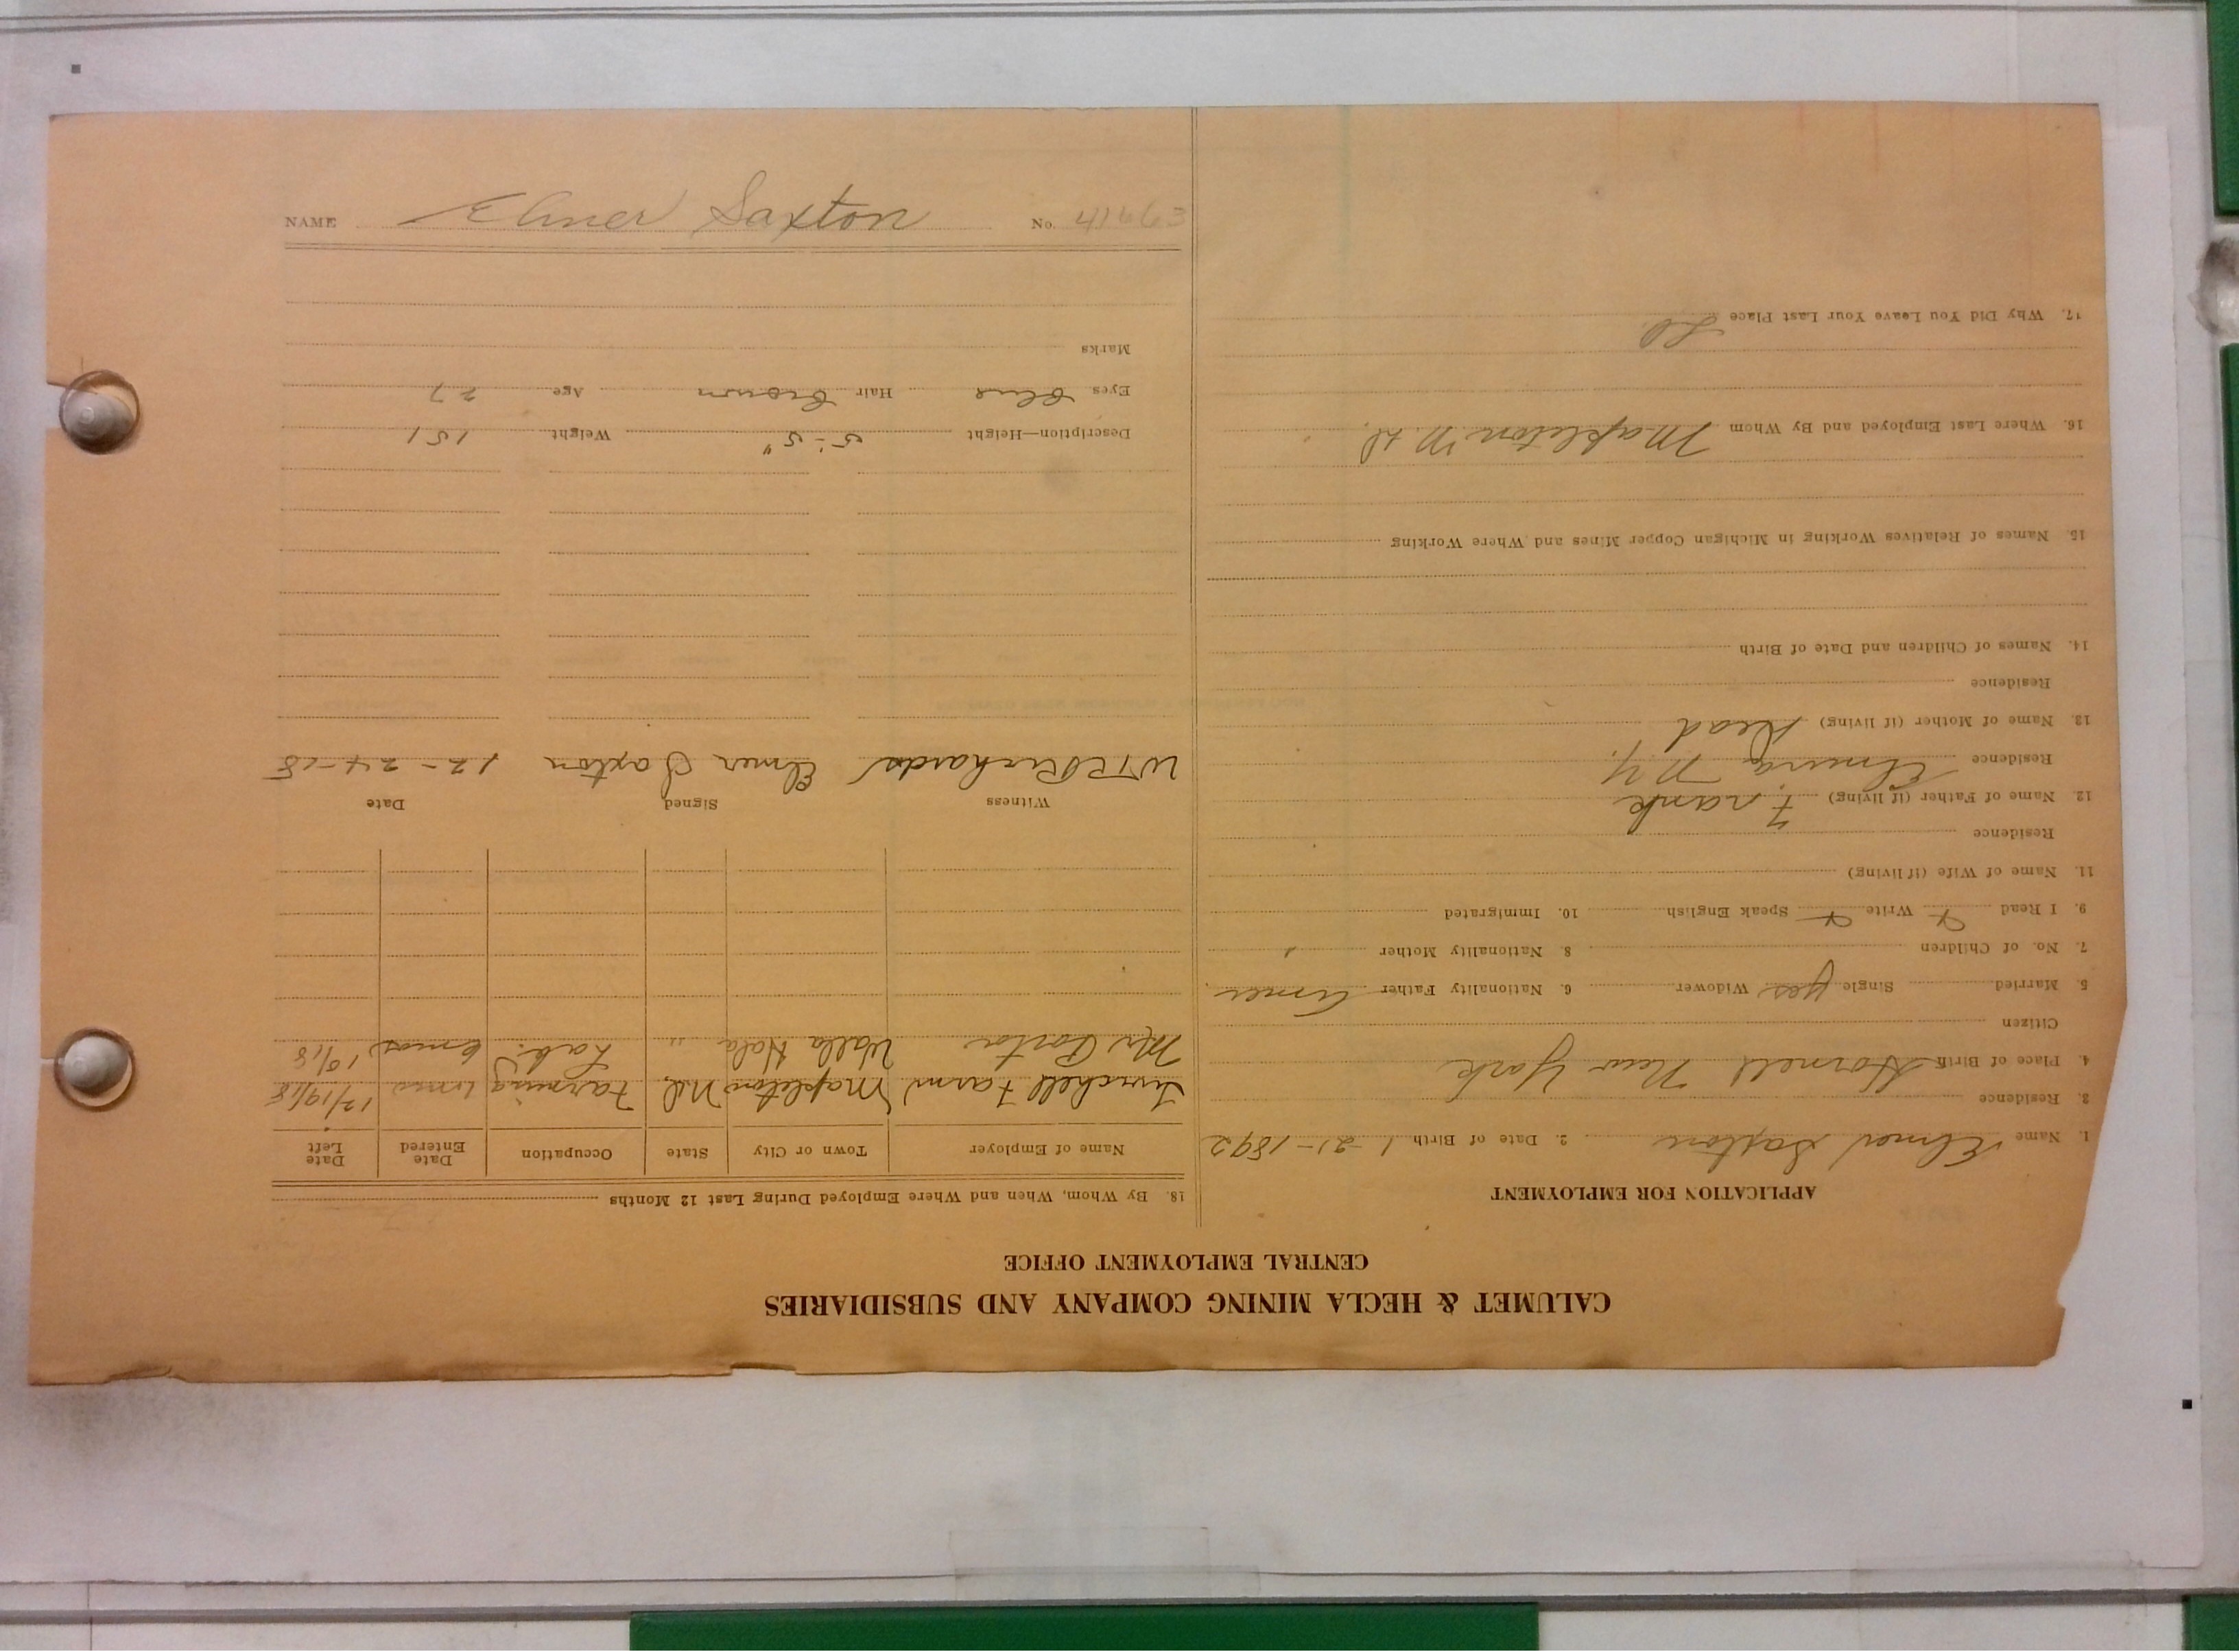 CALUMET & HECLA MINING COMPANY AND SUBSIDIARIES
CENTRAL EMPLOYMENT OFFICE
APPLICATION FOR EMPLOYMENT
1. Name Elmer Saxton 2. Date of Birth 1-21-1892
3. Residence
4. Place of Birth Hornell New York
Citizen
5. Married Single yes Widower 6. Nationality Father Amer
7. No. of Children 8. Nationality Mother
9. I Read Write Speak English 10. Immigrated
11. Name of Wife (if living)
Residence
12. Name of Father (if living) Frank
Residence Elmira N.Y.
13. Name of Mother (if living) Dead
Residence
14. Names of Children and Date of Birth
15. Names of Relatives Working in Michigan Copper Mines and Where Working
16. Where Last Employed and By Whom Mapleton
17. Why Did You Leave Your Last Place
18. By Whom, When and Where Employed During Last 12 Months
Name of Employer Town or City State Occupation Date Entered Date Left
Farm Mapleton N.D. Farming 12/19/18
Mr Porter Walla Hala " Lab. 10/18
Witness Signed Date
Richards Elmer Saxton 12-24-18
Description—Height 5'-5" Weight 151
Eyes Blue Hair Brown Age 27
Marks
NAME Elmer Saxton No. 41663